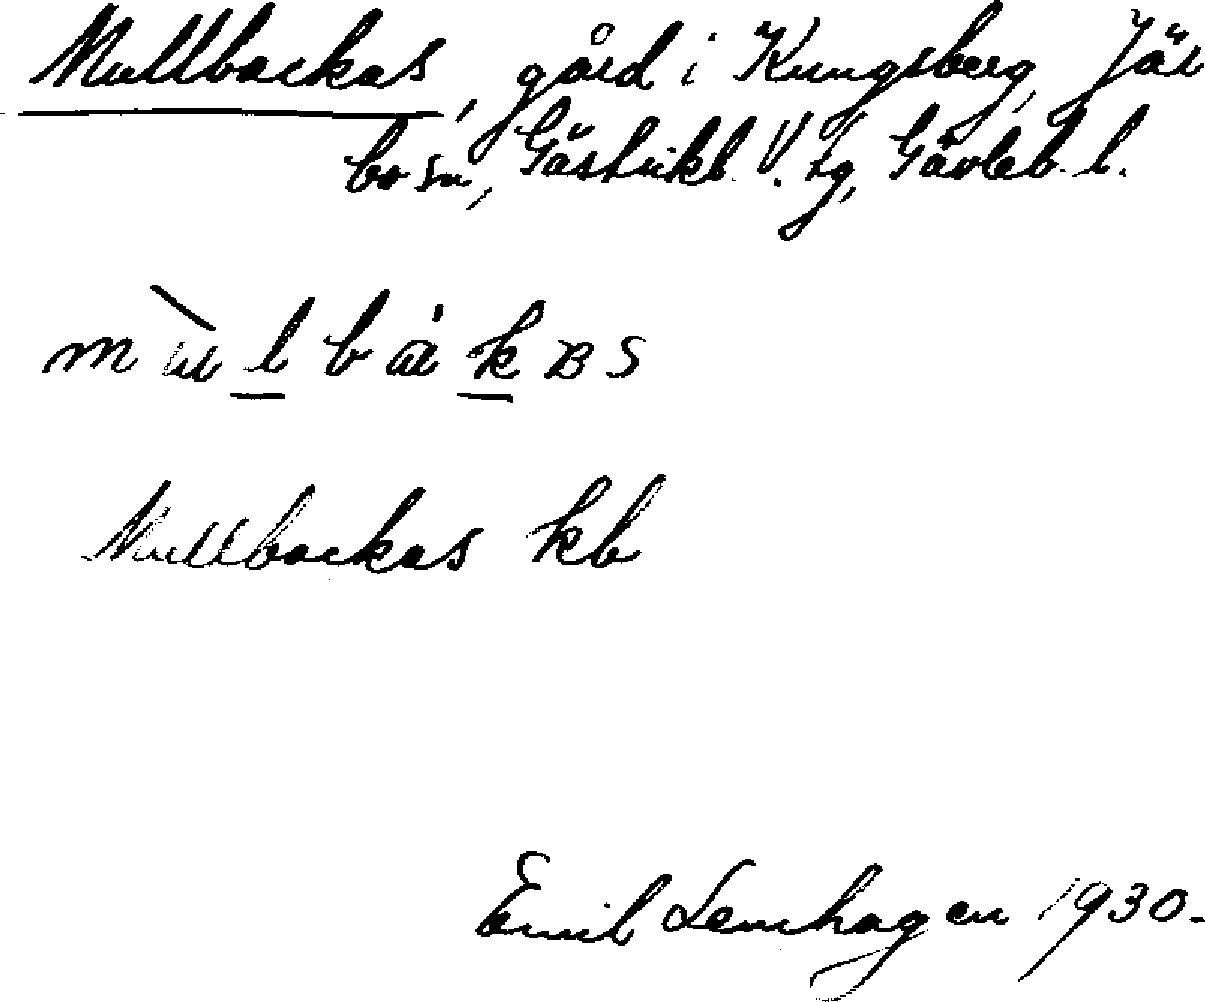 Mullbackas, gård i Kungsberg, Jär
bo sn, Gästrikl. V. tg, Gävleb. l.
Mullbackas kb
Emil Lemhagen 1930.